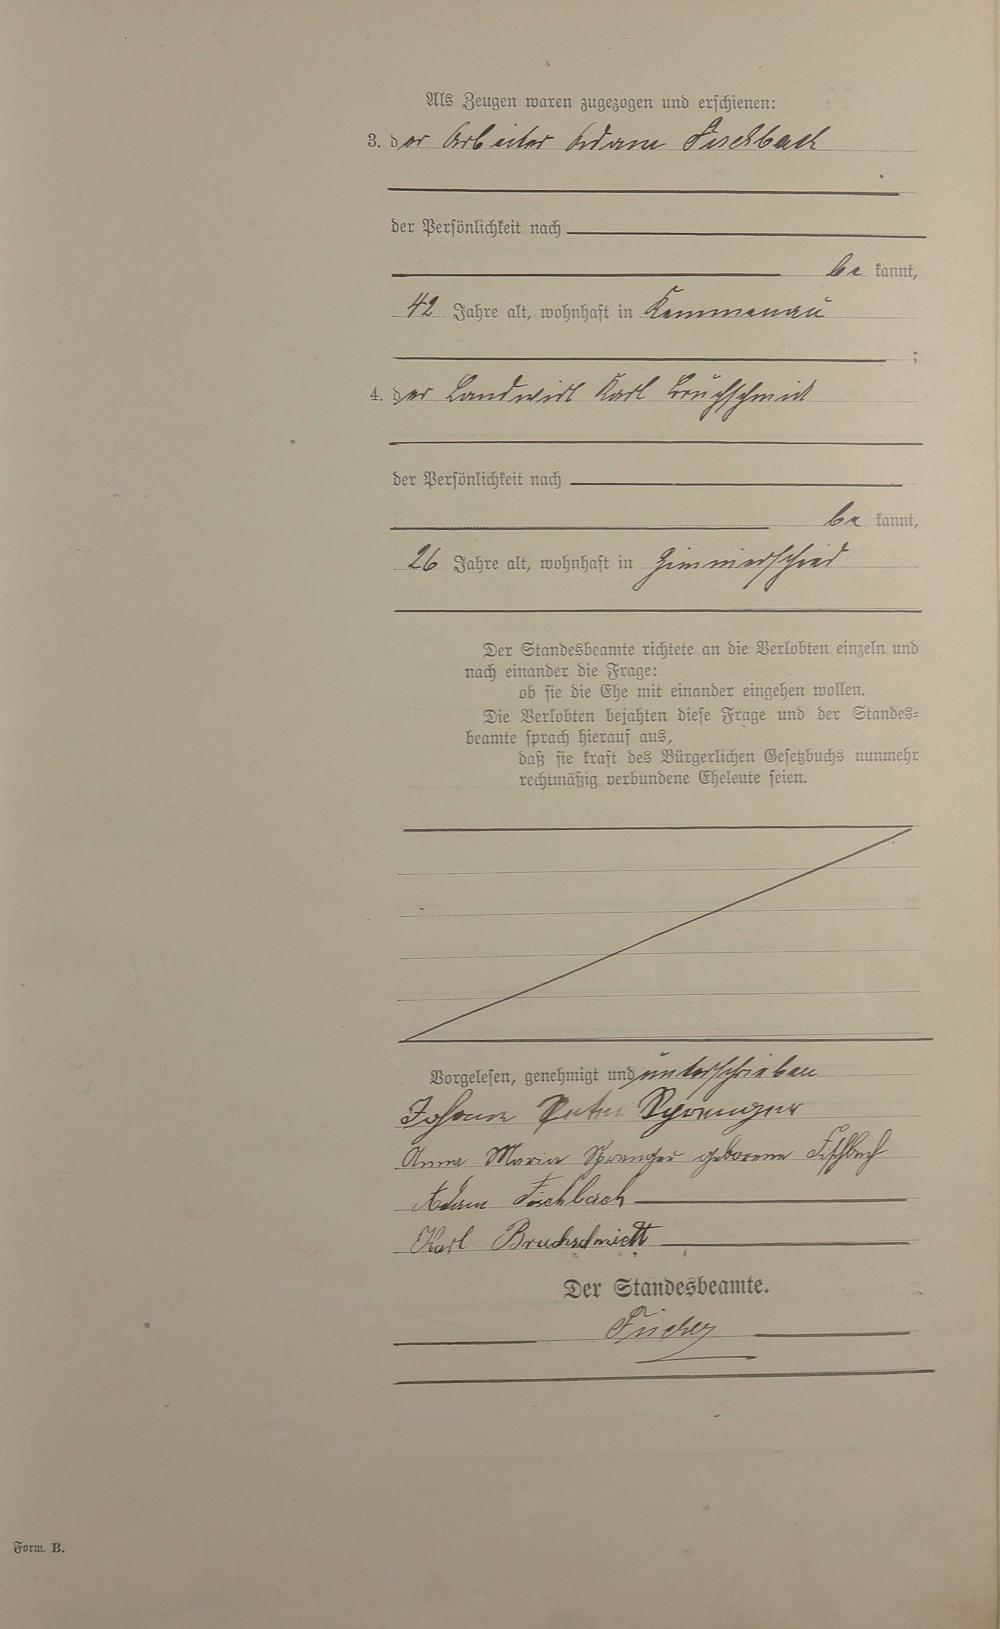 Als Zeugen waren zugezogen und erschienen:
3. der Arbeiter Adam Fischbach
der Persönlichkeit nach
be kannt,
42 Jahre alt, wohnhaft in Kemmenau
;
4. der Landwirt Karl Bruchschmidt
der Persönlichkeit nach
be kannt,
26 Jahre alt, wohnhaft in Zimmerschied
Der Standesbeamte richtete an die Verlobten einzeln und
nach einander die Frage:
ob sie die Ehe mit einander eingehen wollen.
Die Verlobten bejahten diese Frage und der Standes-
beamte sprach hierauf aus,
daß sie kraft des Bürgerlichen Gesetzbuchs nunmehr
rechtmäßig verbundene Eheleute seien.
Vorgelesen, genehmigt und unterschrieben
Johann Peter Sprenger
Anna Maria Sprenger geborene Fischbach
Adam Fischbach
Karl
Der Standesbeamte.
Form. B.